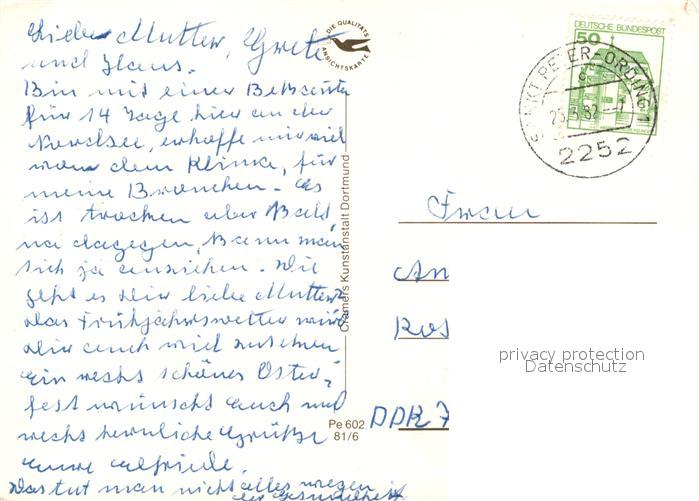 Liebe Mutter, Grete
und Hans.
Bin mit einer Bekannten
für 14 Tage hier an der
Nordsee, erhoffe mir viel
von dem Klima, für
meine Bronchen. Es
ist trocken aber Kalt,
na dagegen, Kann man
sich ja anziehen. Wie
geht es dir liebe Mutter?
das Frühjahrswetter wird
dir auch viel
Ein rechts schönes Oster-
fest wünscht Euch und
rechts herzliche Grüße
Eure Elfriede.
Was tut man nicht alles wegen
der Gesundheit
DIE QUALITÄTS
ANSICHTSKARTE
Cramers Kunstanstalt Dortmund
Pe 602
81/6
DEUTSCHE BUNDESPOST
50
SANKT PETER-ORDING 1
25.3.82
2252
Frau
An
Ros
DDR 7
privacy protection
Datenschutz